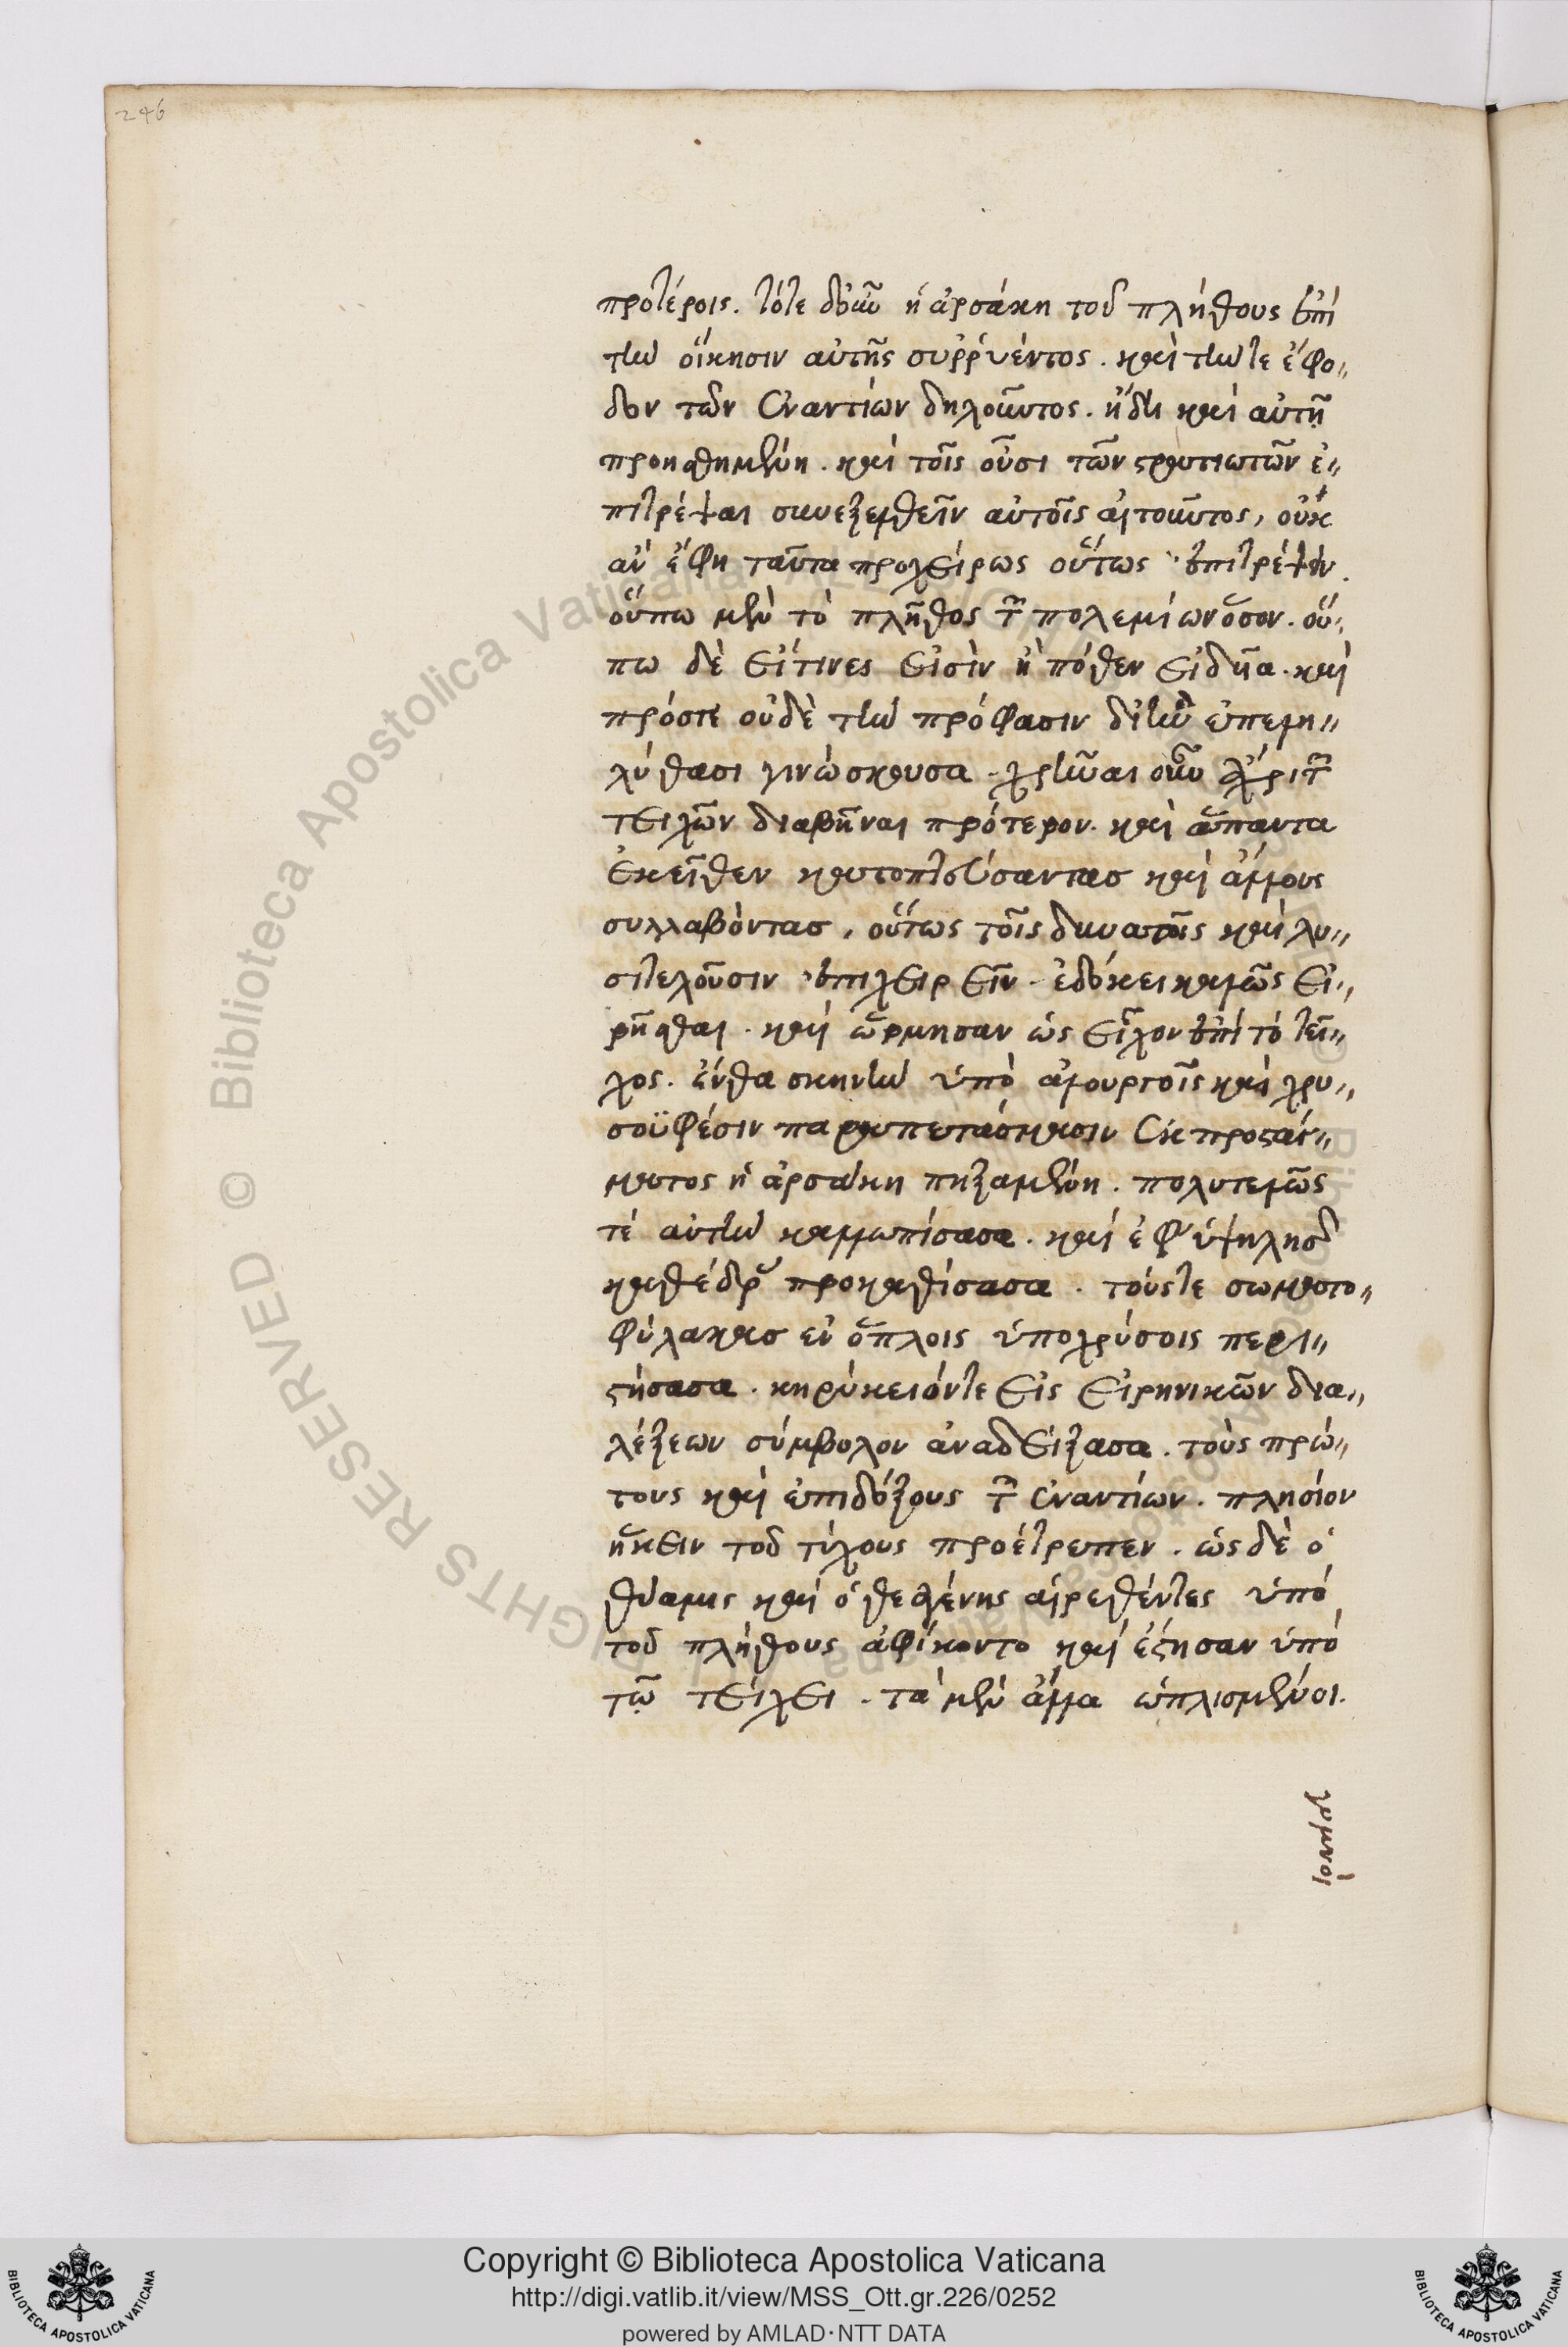 246
προτέροις. τότε δ᾽ οὖν ἡ ἀρσάκη τοῦ πλήθους ἐπὶ
τὴν οἴκησιν αὐτῆς συῤῥυέντος. καὶ τήν τε ἔφο〃
δον τῶν ἐναντίων δηλοῦντος. ἤδη καὶ αὐτῇ
προησθημένη. καὶ τοῖς οὖσι τῶν στρατιωτῶν ἐ〃
πιτρέψαι συνεξελθεῖν αὐτοῖς αἰτοῦντος, οὐκ
ἂν ἔφη ταῦτα προχείρως οὕτως ἐπιτρέψειν.
οὔπω μὲν τὸ πλῆθος τῶν πολεμίων ὅσον. οὔ〃
πω δὲ εἵτινες εἰσὶν ἢ πόθεν εἰδυῖα. καὶ
πρόστε οὐδὲ τὴν πρόφασιν δι᾽ ἣν ἐπελη〃
λύθασι γινώσκουσα. χρῆναι οὖν ἄχρι τῶν
τειχῶν διαβῆναι πρότερον. καὶ ἅπαντα
ἐκεῖθεν κατοπτεύσαντας καὶ ἄλλους
συλλαβόντας, οὕτως τοῖς δυνατοῖς καὶ λυ〃
σιτελοῦσιν ἐπιχειρεῖν. ἐδόκει καλῶς εἰ〃
ρῆσθαι. καὶ ὥρμησαν ὡς εἶχον ἐπὶ τὸ τεῖ〃
χος. ἔνθα σκηνὴν ὑπὸ ἁλουργοῖς καὶ χρυ〃
σοϋφέσιν παραπετάσμασιν ἐκ προστάγ〃
ματος ἡ ἀρσάκη πηξαμένη. πολυτελῶς
τὲ αὐτὴν καλλωπίσασα. καὶ ἐφ᾽ ὑψηλῆς
καθέδρας προκαθίσασα. τούς τε σωματο〃
φύλακας ἐν ὅπλοις ὑποχρύσοις περι〃
στήσασα. κηρύκειόν τε εἰς εἰρηνικῶν δια〃
λέξεων σύμβολον ἀναδείξασα. τοὺς πρώ〃
τους καὶ ἐπιδόξους τῶν ἐναντίων. πλησίον
ἥκειν τοῦ τείχους προέτρεπεν. ὡς δὲ ὁ
θύαμις καὶ ὁ θεαγένης αἱρεθέντες ὑπὸ
τοῦ πλήθους ἀφίκοντο καὶ ἔστησαν ὑπὸ
τῷ τείχει. τὰ μὲν ἄλλα ὡπλισμένοι.
γυμνοὶ